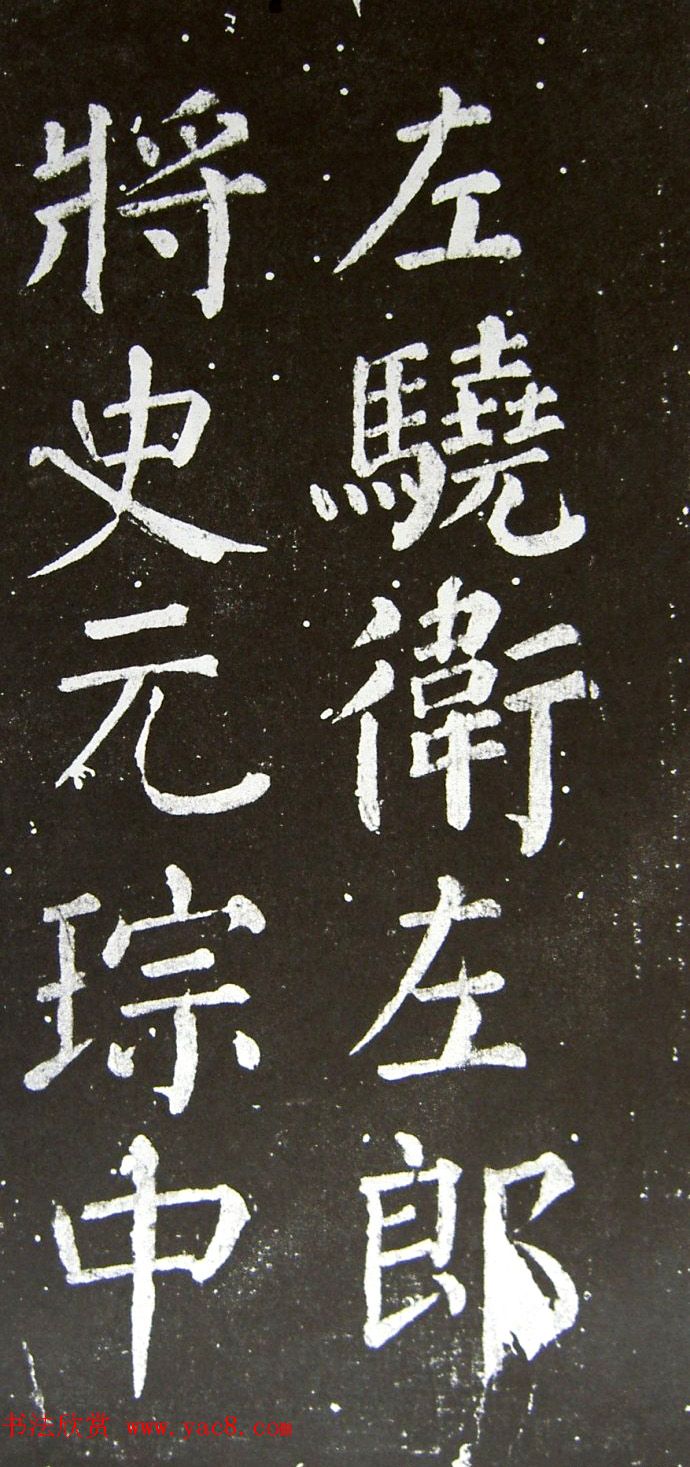 左驍衛左郎
將史元琮中
书法欣赏 www.yac8.com